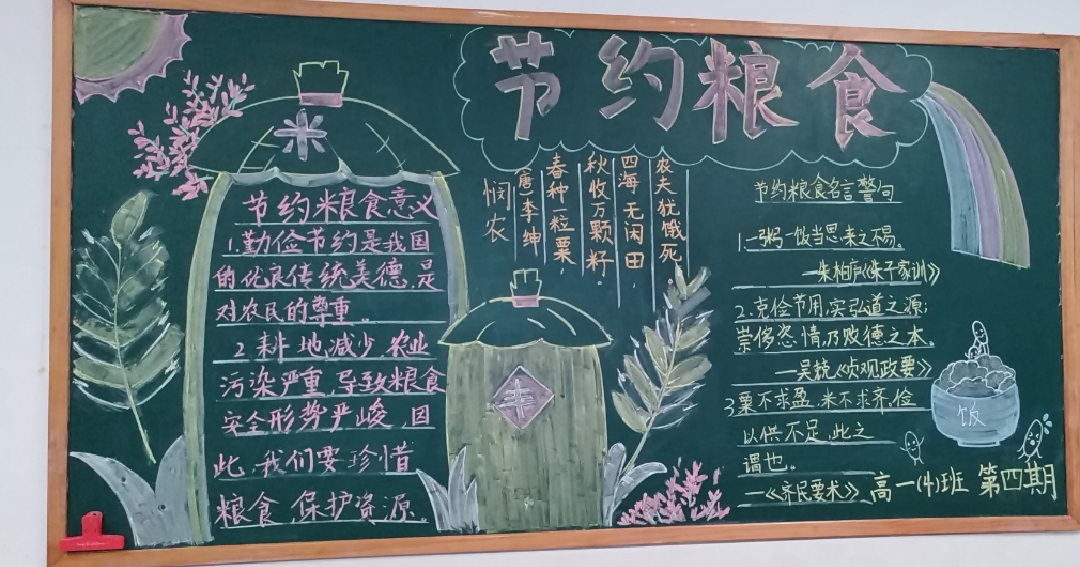 节约粮食
米
节约粮食意义
1.勤俭节约是我国
的优良传统美德,是
对农民的尊重。
2.耕地减少,农业
污染严重,导致粮食
安全形势严峻,因
此,我们要珍惜
粮食,保护资源。
悯农
(唐)李绅
春种一粒粟,
秋收万颗籽
四海无闲田,
农夫犹饿死
丰
节约粮食名言警句
1.一粥一饭当思来之不易。
—朱柏庐《朱子家训》
2.克俭节用,实弘道之源;
崇侈恣情,乃败德之本。
—吴兢《贞观政要》
3.粟不求盈,米不求齐,俭
以供不足,此之
谓也。
—《齐民要术》
饭
高一(4)班 第四期